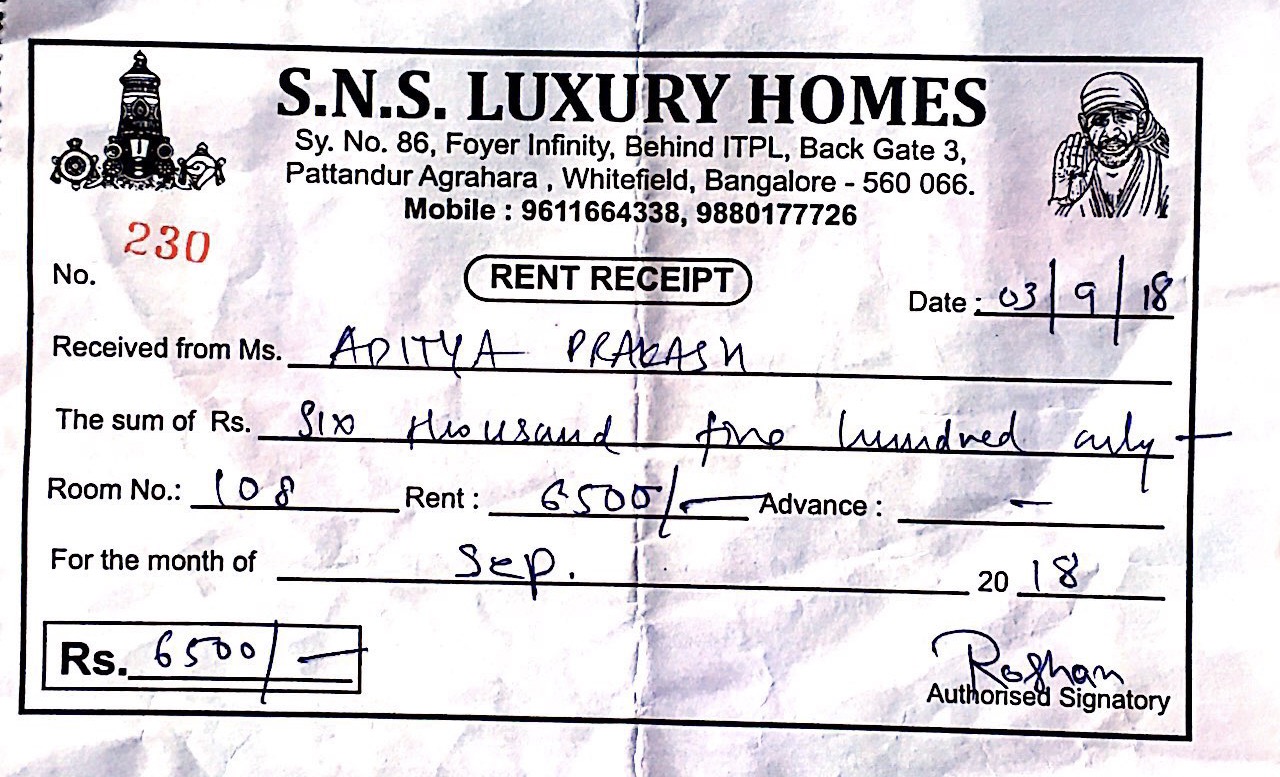 S.N.S. LUXURY HOMES
Sy. No. 86, Foyer Infinity, Behind ITPL, Back Gate 3,
Pattandur Agrahara , Whitefield, Bangalore - 560 066.
Mobile : 9611664338, 9880177726
No. 230
RENT RECEIPT
Date : 03/9/18
Received from Ms. ADITYA PRAKASH
The sum of Rs. Six thousand five hundred only —
Room No.: 108 Rent : 6500/— Advance : —
For the month of Sep. 20 18
Rs. 6500/—
Roshan
Authorised Signatory